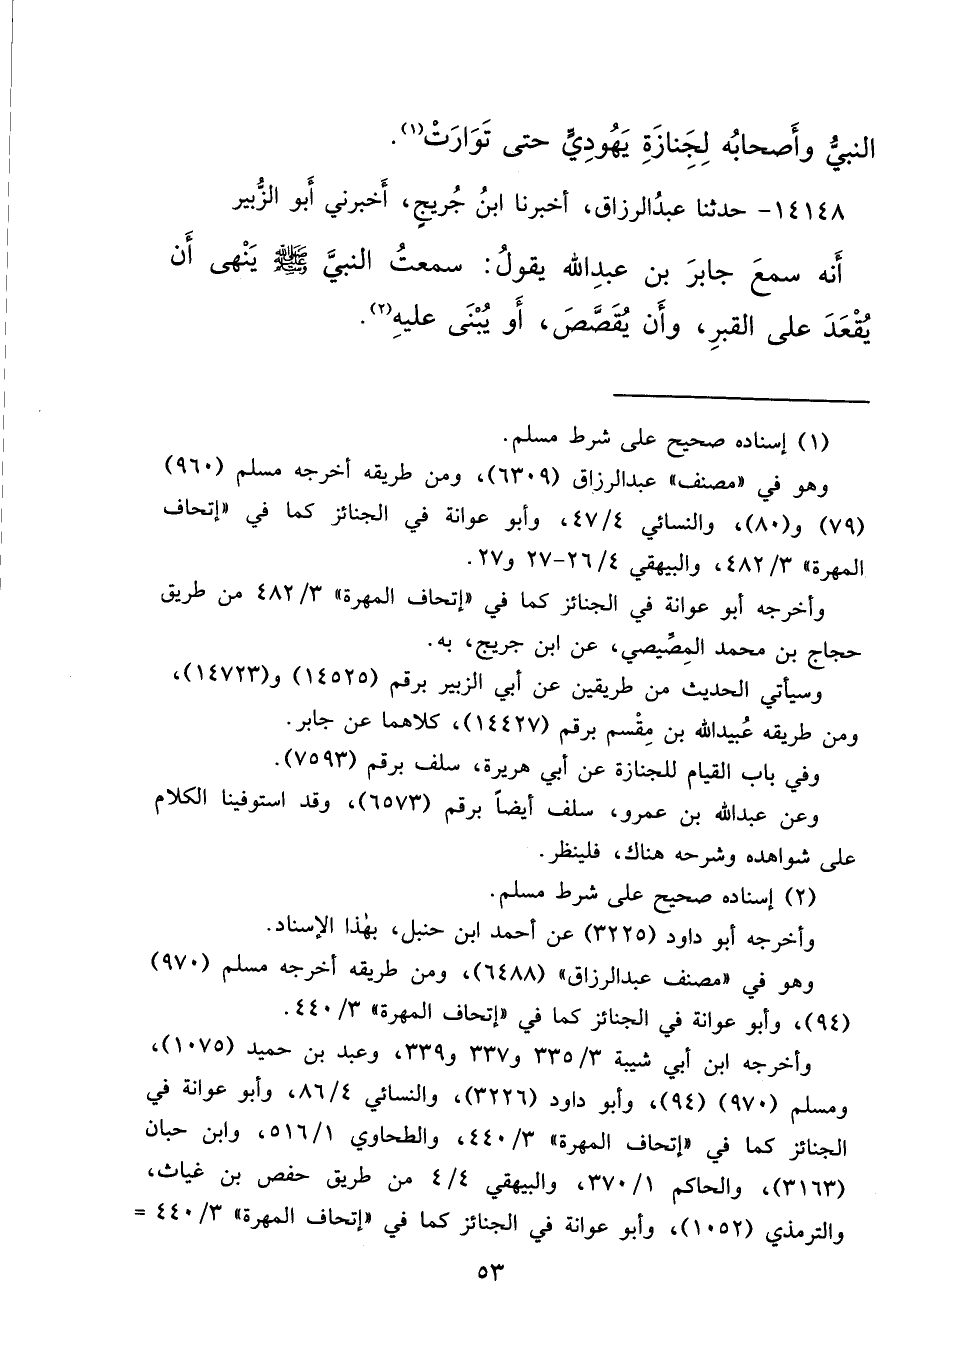 النبيُّ وأَصحابُه لِجَنازَةِ يَهُودِيٍّ حتى تَوَارَتْ(١).
١٤١٤٨- حدثنا عبدُالرزاق، أخبرنا ابنُ جُريجٍ، أَخبرني أَبو الزُّبير
أَنه سمعَ جابرَ بن عبدِالله يقولُ: سمعتُ النبيَّ ﷺ يَنْهى أَن
يُقْعَدَ على القبرِ، وأَن يُقَصَّصَ، أَو يُبْنَى عليهِ(٢).
(١) إسناده صحيح على شرط مسلم.
وهو في «مصنف» عبدالرزاق (٦٣٠٩)، ومن طريقه أخرجه مسلم (٩٦٠)
(٧٩) و(٨٠)، والنسائي ٤٧/٤، وأبو عوانة في الجنائز كما في «إتحاف
المهرة» ٤٨٢/٣، والبيهقي ٢٦/٤-٢٧ و٢٧.
وأخرجه أبو عوانة في الجنائز كما في «إتحاف المهرة» ٤٨٢/٣ من طريق
حجاج بن محمد المِصِّيصي، عن ابن جريج، به.
وسيأتي الحديث من طريقين عن أبي الزبير برقم (١٤٥٢٥) و(١٤٧٢٣)،
ومن طريقه عُبيدالله بن مِقْسم برقم (١٤٤٢٧)، كلاهما عن جابر.
وفي باب القيام للجنازة عن أبي هريرة، سلف برقم (٧٥٩٣).
وعن عبدالله بن عمرو، سلف أيضاً برقم (٦٥٧٣)، وقد استوفينا الكلام
على شواهده وشرحه هناك، فلينظر.
(٢) إسناده صحيح على شرط مسلم.
وأخرجه أبو داود (٣٢٢٥) عن أحمد ابن حنبل، بهٰذا الإسناد.
وهو في «مصنف عبدالرزاق» (٦٤٨٨)، ومن طريقه أخرجه مسلم (٩٧٠)
(٩٤)، وأبو عوانة في الجنائز كما في «إتحاف المهرة» ٤٤٠/٣.
وأخرجه ابن أبي شيبة ٣٣٥/٣ و٣٣٧ و٣٣٩، وعبد بن حميد (١٠٧٥)،
ومسلم (٩٧٠) (٩٤)، وأبو داود (٣٢٢٦)، والنسائي ٨٦/٤، وأبو عوانة في
الجنائز كما في «إتحاف المهرة» ٤٤٠/٣، والطحاوي ٥١٦/١، وابن حبان
(٣١٦٣)، والحاكم ٣٧٠/١، والبيهقي ٤/٤ من طريق حفص بن غياث،
والترمذي (١٠٥٢)، وأبو عوانة في الجنائز كما في «إتحاف المهرة» ٤٤٠/٣ =
٥٣